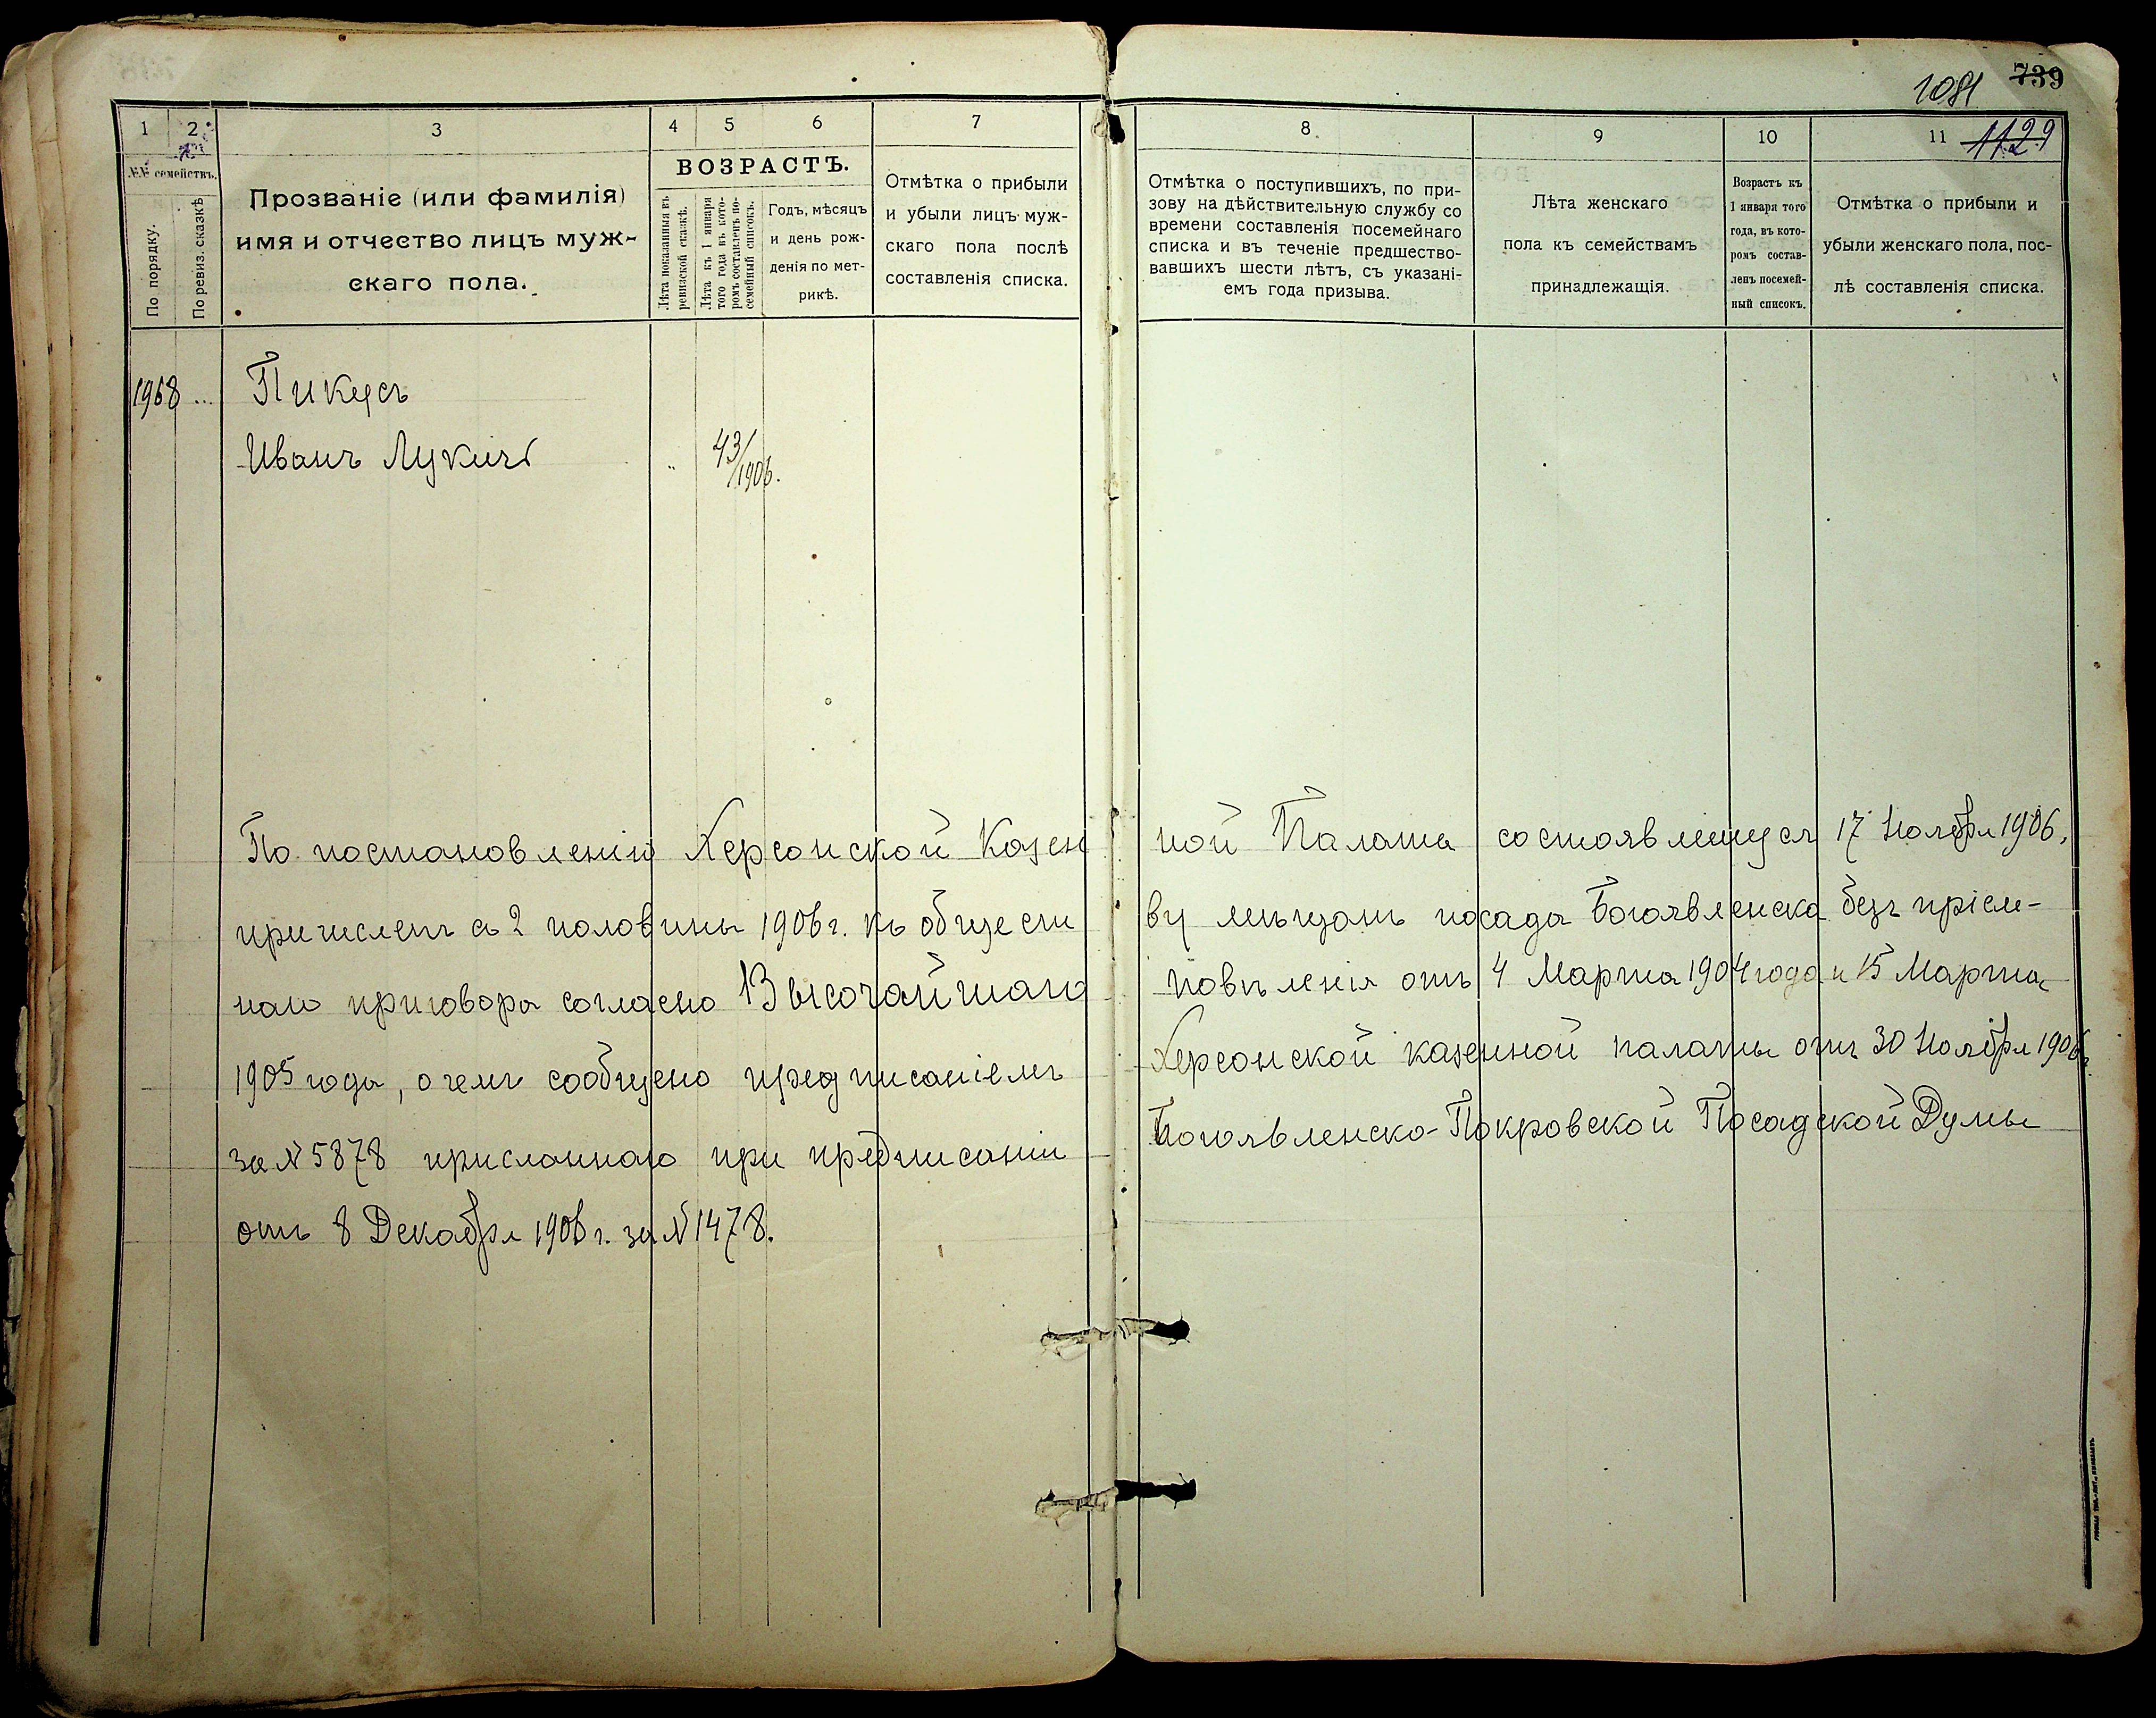 1081 739
1 2 3 4 5 6 7 8 9 10 11 1129
№№ семействъ.
По порядку.
По ревиз. сказкѣ
Прозваніе (или фамилія)
имя и отчество лицъ муж-
скаго пола.
ВОЗРАСТЪ.
Лѣта показанныя въ
ревизской сказкѣ.
Лѣта къ 1 января
того года въ кото-
ромъ составленъ по-
семейный списокъ.
Годъ, мѣсяцъ
и день рож-
денія по мет-
рикѣ.
Отмѣтка о прибыли
и убыли лицъ муж-
скаго пола послѣ
составленія списка.
Отмѣтка о поступившихъ, по при-
зову на дѣйствительную службу со
времени составленія посемейнаго
списка и въ теченіе предшество-
вавшихъ шести лѣтъ, съ указані-
емъ года призыва.
Лѣта женскаго
пола къ семействамъ
принадлежащія.
Возрастъ къ
1 января того
года, въ кото-
ромъ состав-
ленъ посемей-
ный списокъ.
Отмѣтка о прибыли и
убыли женскаго пола, пос-
лѣ составленія списка.
1968 ... Пикусъ
Иванъ Лукичъ „ 43/1906.
По постановленію Херсонской Казен ной Палаты состоявшемуся 17 Ноября 1906,
причисленъ съ 2 половины 1906 г. къ общест ву мѣщанъ посада Богоявленска безъ пріем-
наго приговора согласно Высочайшаго повѣленія отъ 4 Марта 1904 года и 15 Марта
1905 года, о чемъ сообщено предписаніемъ Херсонской казенной палаты отъ 30 Ноября 1906 г.
за № 5878 присланнаго при предписаніи Богоявленско-Покровской Посадской Думы
отъ 8 Декабря 1906 г. за № 1478.